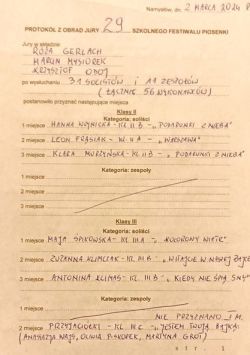 Namysłów, dn. 2 MARCA 2024
PROTOKÓŁ Z OBRAD JURY 29 SZKOLNEGO FESTIWALU PIOSENKI
Jury w składzie
RÓŻA GERLACH
MARCIN MYSIOREK
KRZYSZTOF
po wysłuchaniu 31 SOLISTÓW I 11 ZESPOŁÓW
(ŁĄCZNIE 56 WYKONAWCÓW)
postanowiło przyznać następujące miejsca
Klasy II
Kategoria: soliści
1 miejsce HANNA WÓJNICKA - KL. II B - „PODARUNKI Z NIEBA"
2 miejsce LEON - KL. II A -
3 miejsce KLARA - KL. II B - „PODARUNKI Z NIEBA"
Kategoria: zespoły
1 miejsce
2 miejsce
3 miejsce
Klasy III
Kategoria: soliści
1 miejsce MAJA - KL. III A - „KOLOROWY WIATR"
2 miejsce ZUZANNA KLIMCZAK - KL. III B - „WITAJCIE W NASZEJ
3 miejsce ANTONINA KLIMAS - KL. III B - „KIEDY NIE
Kategoria: zespoły
1 miejsce NIE PRZYZNANO I M.
2 miejsce PRZYJACIÓŁKI - KL. III C - „JESTEM TWOJĄ BAJKĄ"
(ANASTAZJA OLIWIA MARTYNA GROT)